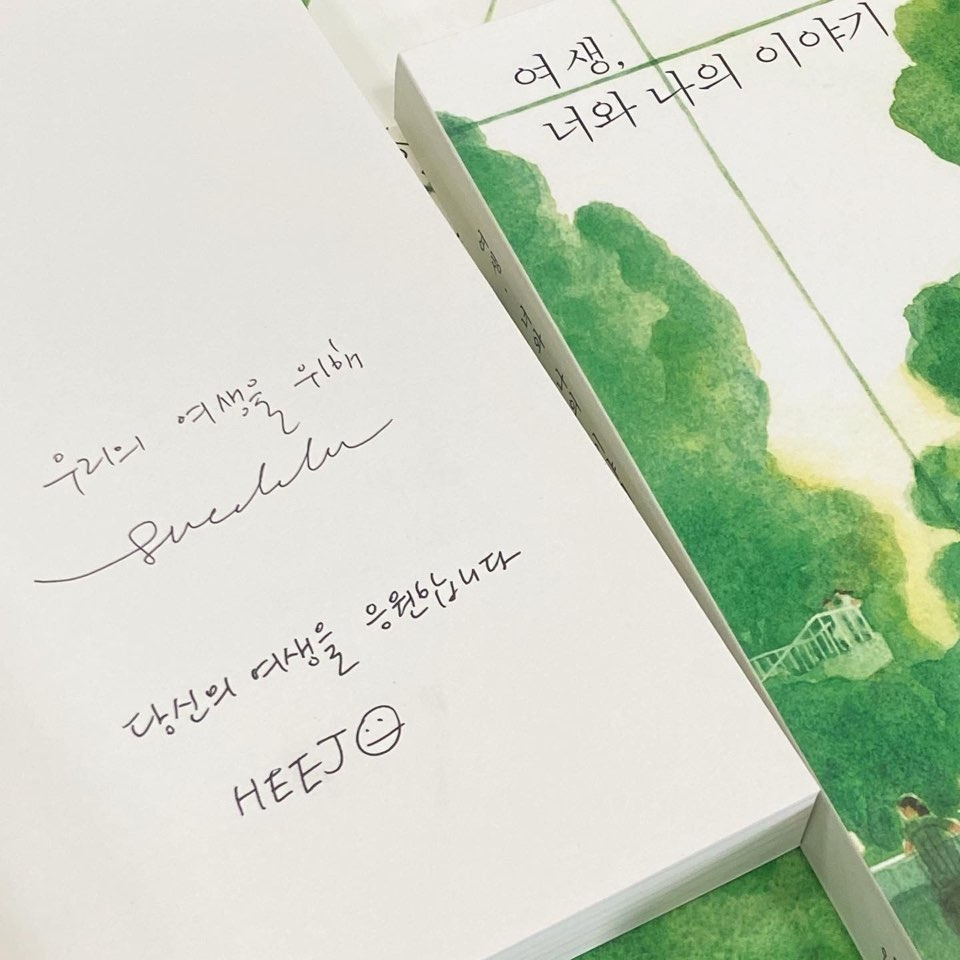 우리의 여생을 위해
당신의 여생을 응원합니다
HEEJO
여생,
너와 나의 이야기